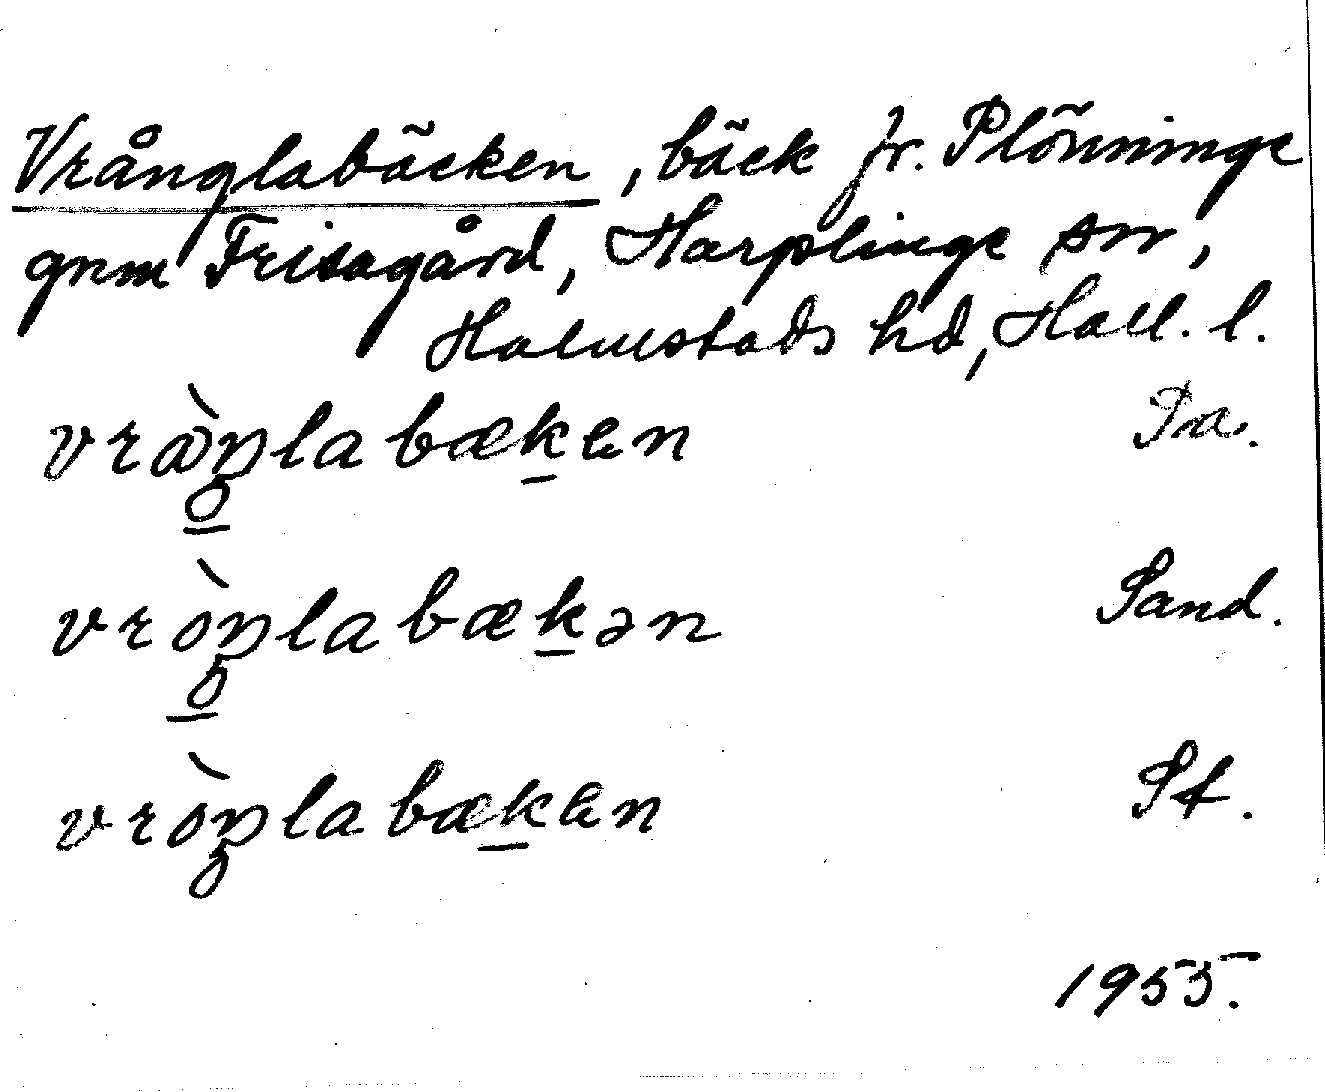 Vrånglabäcken, bäck fr. Plönninge
gnm Frisagård, Harplinge sn,
Halmstads hd, Hall. l.
vrɷ̀ŋlabækɐn Pa.
vròŋlabækən Sand.
vròŋlabækɐn St.
1955.